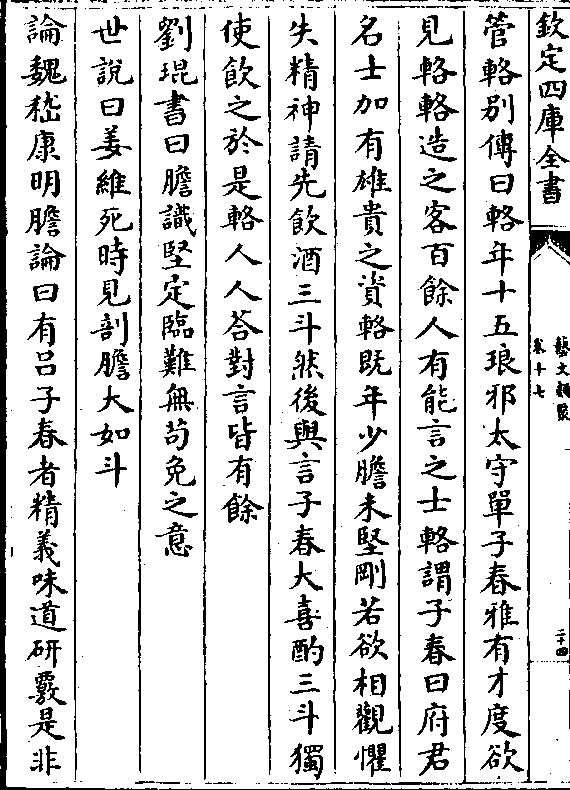 欽定四庫全書
藝文類聚
卷十七
二十四
管輅別傳曰輅年十五琅邪太守單子春雅有才度欲
見輅輅造之客百餘人有能言之士輅謂子春曰府君
名士加有雄貴之資輅既年少膽未堅剛若欲相觀懼
失精神請先飲酒三斗然後與言子春大喜酌三斗獨
使飲之於是輅人人荅對言皆有餘
劉琨書曰膽識堅定臨難無苟免之意
世說曰姜維死時見剖膽大如斗
論魏嵇康明膽論曰有吕子春者精義味道研覈是非